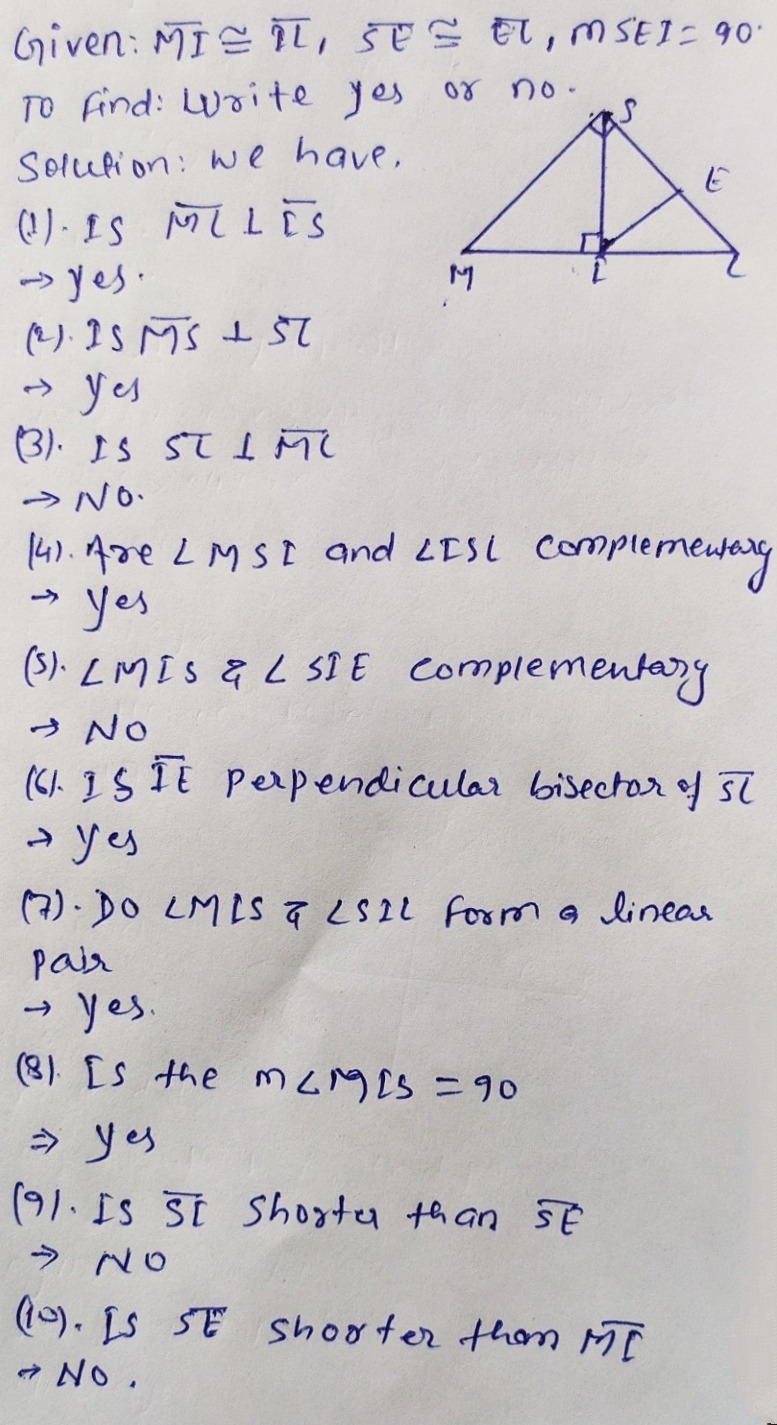 Given: MI ≅ IL, SE ≅ EL, m SEI = 90.
To find: Write yes or no.
Solution: we have.
(1). Is ML ⊥ IS
→ yes.
(2). Is MS ⊥ SL
→ yes
(3). Is SL ⊥ ML
→ No.
(4). Are ∠MSI and ∠ISL complementary
→ yes
(5). ∠MIS & ∠SIE complementary
→ NO
(6). IS IE perpendicular bisector of SL
→ yes
(7). DO ∠MIS & ∠SIL form a linear
pair
→ yes.
(8). Is the m∠MIS = 90
⇒ yes
(9). Is SI shorter than SE
→ NO
(10). Is SE shorter than MI
→ NO.
S
E
M
I
L